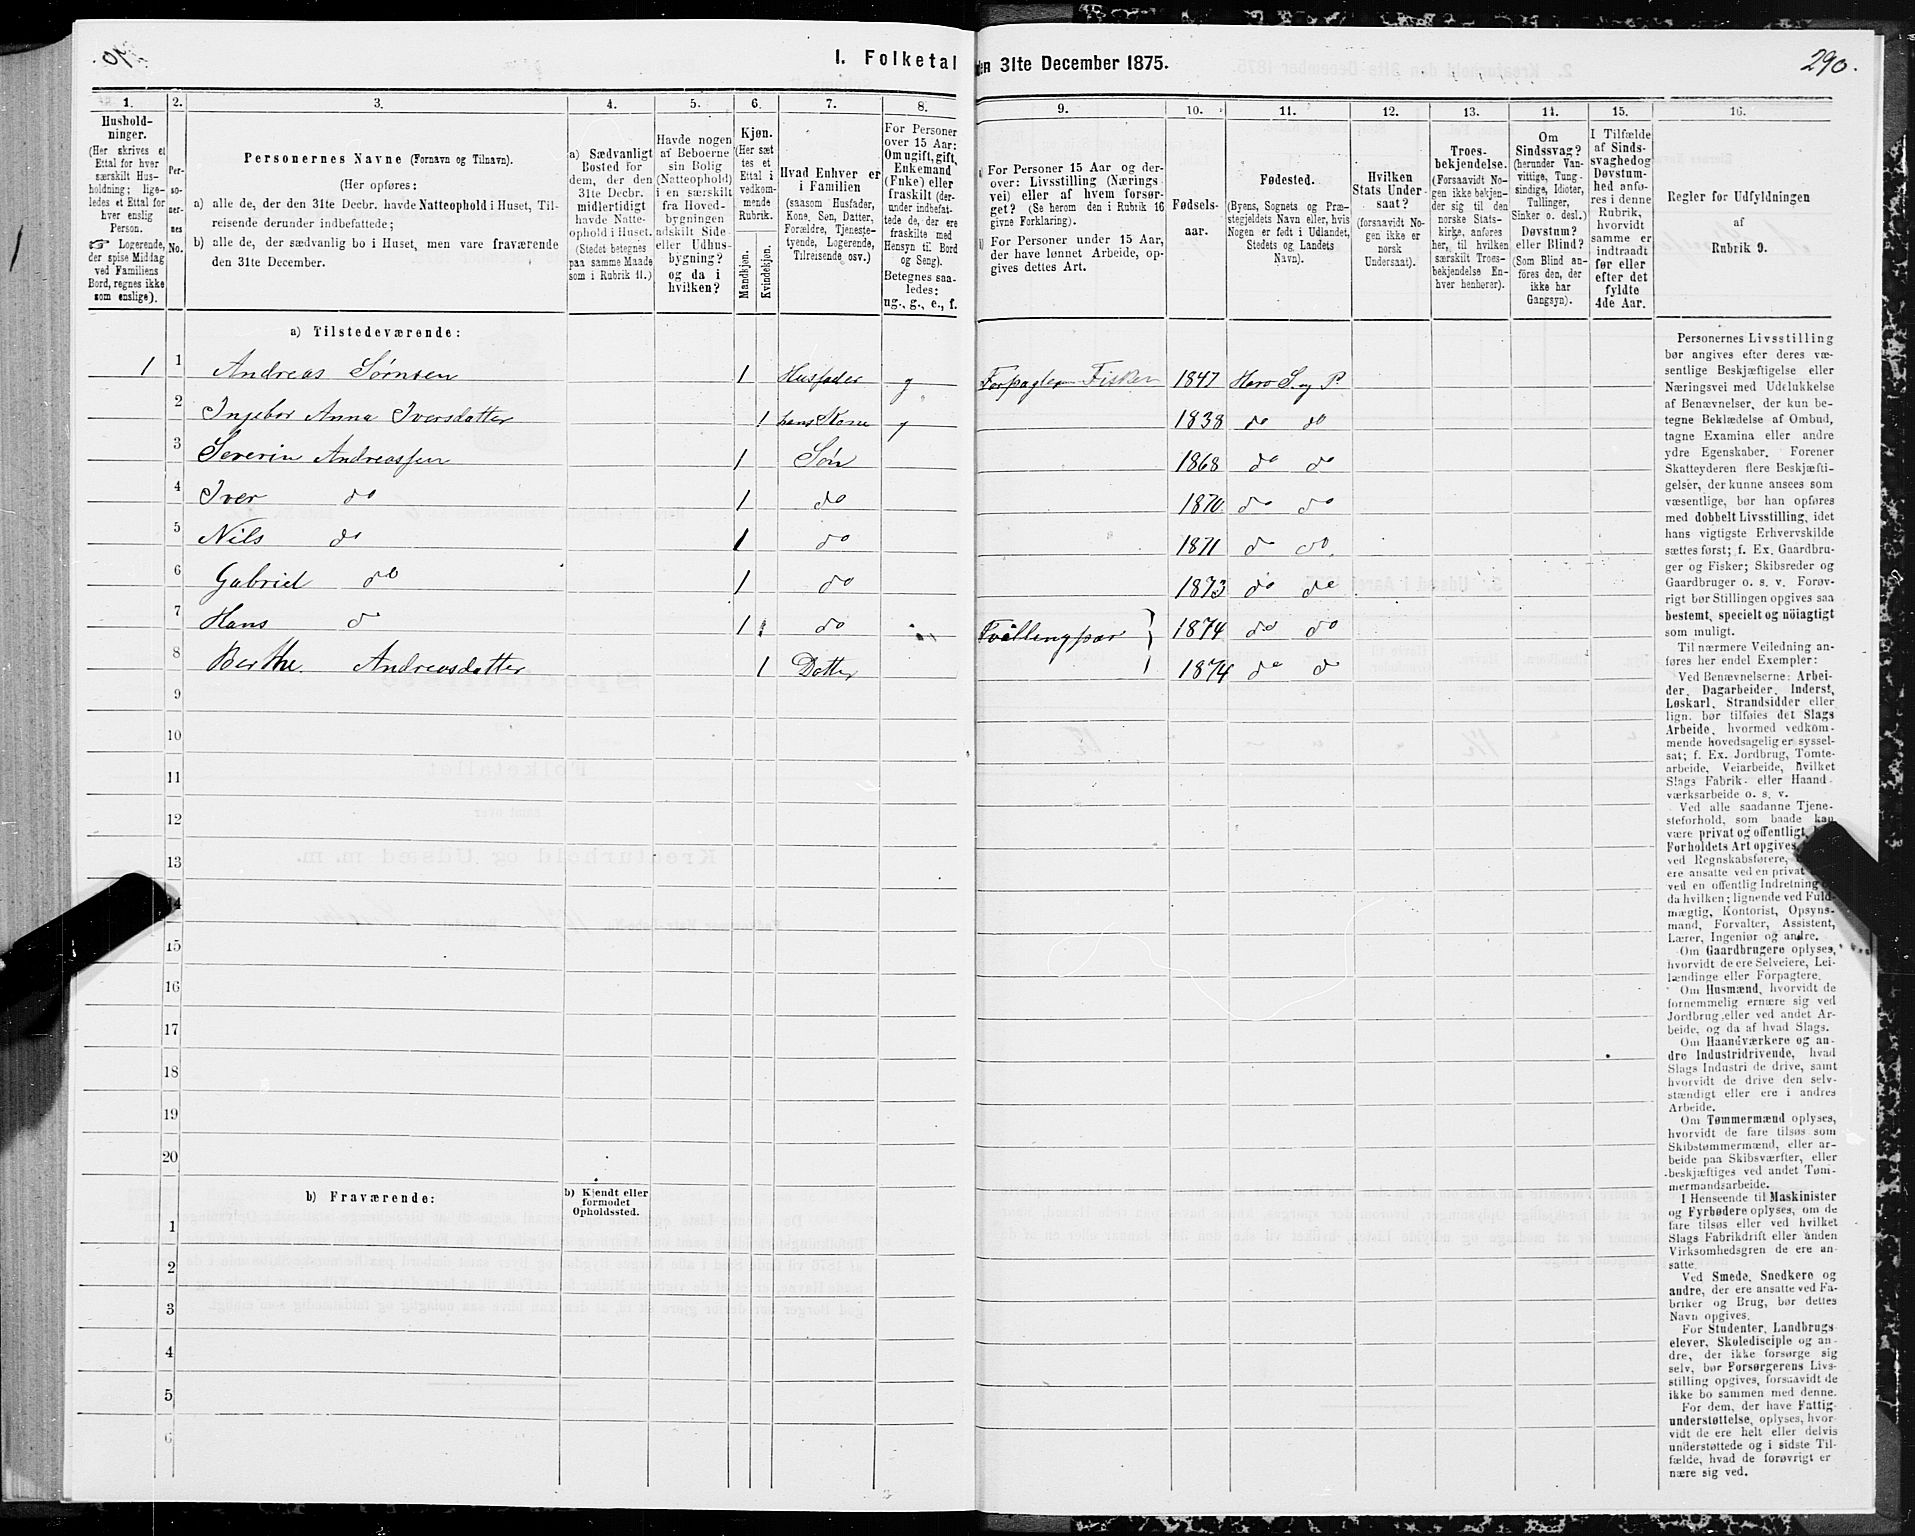 290.
I. Folketal den 31te December 1875.
1. 2. 3. 4. 5. 6. 7. 8. 9. 10. 11. 12. 13. 14. 15. 16.
Husholdninger.
(Her skrives et
Ettal for hver
særskilt Husholdning; ligeledes
et Ettal for
hver enslig
Person.
☞ Logerende,
der spise Middag
ved Familiens
Bord, regnes ikke
som enslige).
Personernes No.
Personernes Navne (Fornavn og Tilnavn).
(Her opføres:
a) alle de, der den 31te Decbr. havde Natteophold i Huset, Tilreisende
derunder indbefattede;
b) alle de, der sædvanlig bo i Huset, men vare fraværende
den 31te December.
a) Sædvanligt
Bosted for
dem, der den
31te Decbr.
midlertidigt
havde Natteophold
i Huset.
(Stedet betegnes
paa samme Maade
som i Rubrik 11.)
Havde nogen
af Beboerne
sin Bolig
(Natteophold)
i en særskilt
fra Hovedbygningen
adskilt Side-
eller Udhusbygning?
og da i
hvilken?
Kjøn.
(Her sættes
et
Ettal i
vedkommende
Rubrik.
Mandkjøn.
Kvindekjøn.
Hvad Enhver er
i Familien
(saasom Husfader,
Kone, Søn, Datter,
Forældre, Tjenestetyende,
Logerende,
Tilreisende osv.)
For Personer
over 15 Aar:
Om ugift, gift,
Enkemand
(Enke) eller
fraskilt (derunder
indbefattede
de, der ere
fraskilte med
Hensyn til Bord
og Seng).
Betegnes saaledes:
ug., g., e., f.
a) For Personer 15 Aar og derover:
Livsstilling (Næringsvei)
eller af hvem forsørget?
(Se herom den i Rubrik 16
givne Forklaring).
b) For Personer under 15 Aar,
der have lønnet Arbeide, opgives
dettes Art.
Fødselsaar.
Fødested.
(Byens, Sognets og Præstegjeldets
Navn eller, hvis
Nogen er født i Udlandet,
Stedets og Landets
Navn).
Hvilken
Stats Undersaat?
(forsaavidt Nogen
ikke er
norsk
Undersaat).
Troesbekjendelse.
(Forsaavidt Nogen
ikke bekjender
sig til den
norske Statskirke,
anføres
her, til hvilken
særskilt Troesbekjendelse
Enhver
henhører).
Om
Sindssvag?
(herunder Vanvittige,
Tungsindige,
Idioter,
Tullinger,
Sinker o. desl.)
Døvstum?
eller Blind?
(Som Blind anføres
den, der
ikke har
Gangsyn).
I Tilfælde
af Sindssvaghed
og
Døvstumhed
anføres
i denne
Rubrik,
hvorvidt
samme er
indtraadt
før eller
efter det
fyldte
4de Aar.
Regler for Udfyldningen
af
Rubrik 9.
a) Tilstedeværende:
1 1 Andreas Sørnsen 1 Husfader g Forpagter Fisker 1847 Harø S. og P.
2 Ingebor Anna Iversdatter 1 hans Kone g 1838 do do
3 Severin Andreassen 1 Søn 1868 do do
4 Iver do 1 do 1870 do do
5 Nils do 1 do 1871 do do
6 Gabriel do 1 do 1873 do do
7 Hans d 1 do Tvillingpar } 1874 do do
8 Berthe Andreasdatter 1 Datter 1874 do d
9
10
11
12
13
14
15
16
17
18
19
20
b) Fraværende:
b) Kjendt eller
formodet
Opholdssted.
1
2
3
4
5
6
Personernes Livsstilling
bør angives efter deres væsentlige
Beskjæftigelse eller
Næringsvei med Udelukkelse
af Benævnelser, der kun betegne
Beklædelse af Ombud,
tagne Examina eller andre
ydre Egenskaber. Forener
Skatteyderen flere Beskjæftigelser,
der kunne ansees som
væsentlige, bør han opføres
med dobbelt Livsstilling, idet
hans vigtigste Erhvervskilde
sættes først; f. Ex. Gaardbruger
og Fisker; Skibsreder og
Gaardbruger o. s. v. Forøvrigt
bør Stillingen opgives saa
bestemt, specielt og nöiagtigt
som muligt.
Til nærmere Veiledning anføres
her endel Exempler:
Ved Benævnelserne: Arbeider,
Dagarbeider, Inderst,
Løskarl, Strandsidder eller
lign. bør tilføies det Slags
Arbeide, hvormed vedkommende
hovedsagelig er sysselsat;
f. Ex. Jordbrug, Tomtearbeide,
Veiarbeide, hvilket
Slags Fabrik- eller Haandværksarbeide
o. s. v.
Ved alle saadanne Tjenesteforhold,
som baade kan
være privat og offentligt,
Forholdets Art opgives,
ved Regnskabsførere,
ere ansatte ved en privat
ved en offentlig Indretning
da hvilken; lignende ved Fuldmægtig,
Kontorist, Opsynsmand,
Forvalter, Assistent,
Lærer, Ingeniør og andre.
Om Gaardbrugere oplyses,
hvorvidt de ere Selveiere, Leilændinge
eller Forpagtere.
Om Husmænd, hvorvidt de
fornemmelig ernære sig ved
Jordbrug eller ved andet Arbeide,
og da af hvad Slags.
Om Haandværkere og andre
Industridrivende, hvad
Slags Industri de drive, samt
hvorvidt de drive den selvstændigt
eller ere i andres
Arbeide.
Om Tømmermænd oplyses,
hvorvidt de fare tilsøs som
Skibstømmermænd, eller arbeide
paa Skibsværfter, eller
beskjæftiges ved andet Tømmermandsarbeide.
I Henseende til Maskinister
og Fyrbødere oplyses, om de
fare tilsøs eller ved hvilket
Slags Fabrikdrift eller anden
Virksomhedsgren de ere ansatte.
Ved Smede, Snedkere og
andre, der ere ansatte ved Fabriker
og Brug, bør dettes
Navn opgives.
For Studenter, Landbrugselever,
Skoledisciple og andre,
der ikke forsørge sig
selv, bør Forsørgerens Livsstilling
opgives, forsaavidt de
ikke bo sammen med denne.
For dem, der have Fattigunderstøttelse,
oplyses, hvorvidt
de ere helt eller delvis
understøttede og i sidste Tilfælde,
hvad de forøvrigt er
nære sig ved.